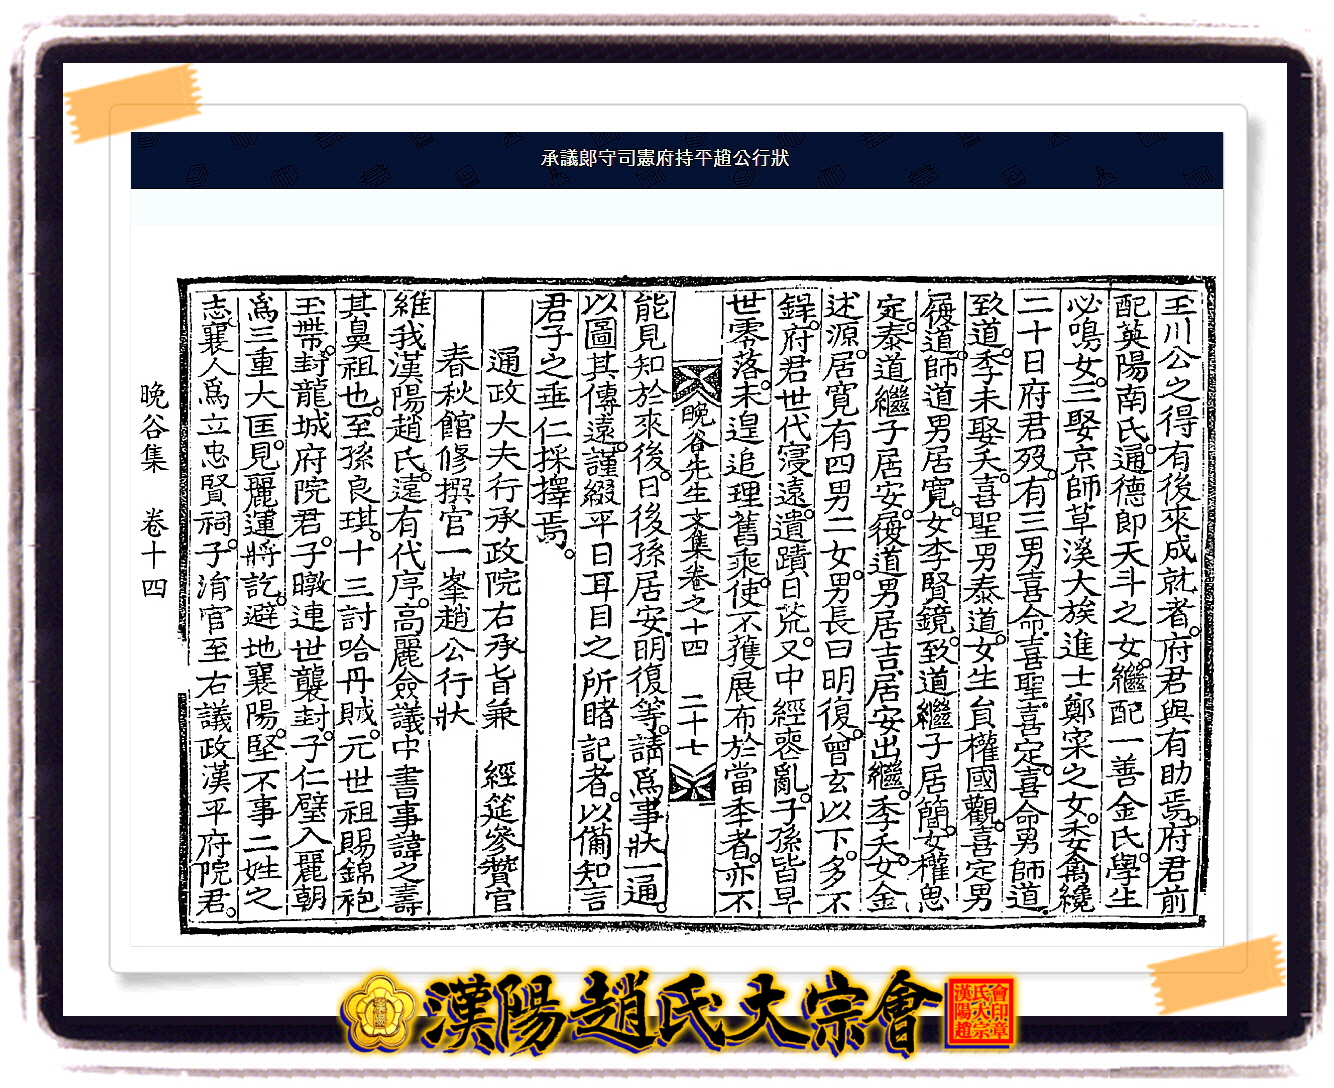 承議郎守司憲府持平趙公行狀
玉川公之得有後來成就者。府君與有助焉。府君前
配英陽南氏。通德郎天斗之女。繼配一善金氏。學生
必鳴女。三娶京師草溪大族進士鄭寀之女。委禽纔
二十日府君歿。有三男喜命喜聖喜定。喜命男師道。
致道。季未娶夭。喜聖男泰道。女生員權國觀。喜定男
履道。師道男居寬。女李賢鏡。致道繼子居簡。女權思
定。泰道繼子居安。履道男居吉居安出繼。季夭女金
述源。居寬有四男二女。男長曰明復。曾玄以下。多不
錄。府君世代寢遠。遺蹟日荒。又中經喪亂。子孫皆早
世零落。未遑追理舊乘。使不獲展布於當季者。亦不
晚谷先生文集卷之十四 二十七
能見知於來後。日後孫居安明復等。請爲事狀一通。
以圖其傳遠。謹綴平日耳目之所睹記者。以備知言
君子之垂仁採擇焉。
通政大夫行承政院右承旨兼 經筵參贊官
春秋館修撰官一峯趙公行狀
維我漢陽趙氏。遠有代序。高麗僉議中書事諱之壽
其鼻祖也。至孫良琪。十三討哈丹賊。元世祖賜錦袍
玉帶。封龍城府院君。子暾連世襲封。子仁璧入麗朝
爲三重大匡。見麗運將訖。避地襄陽。堅不事二姓之
志。襄人爲立忠賢祠。子涓官至右議政漢平府院君。
晚谷集 卷十四
漢陽趙氏大宗會
漢陽
漢陽趙氏大宗會印章